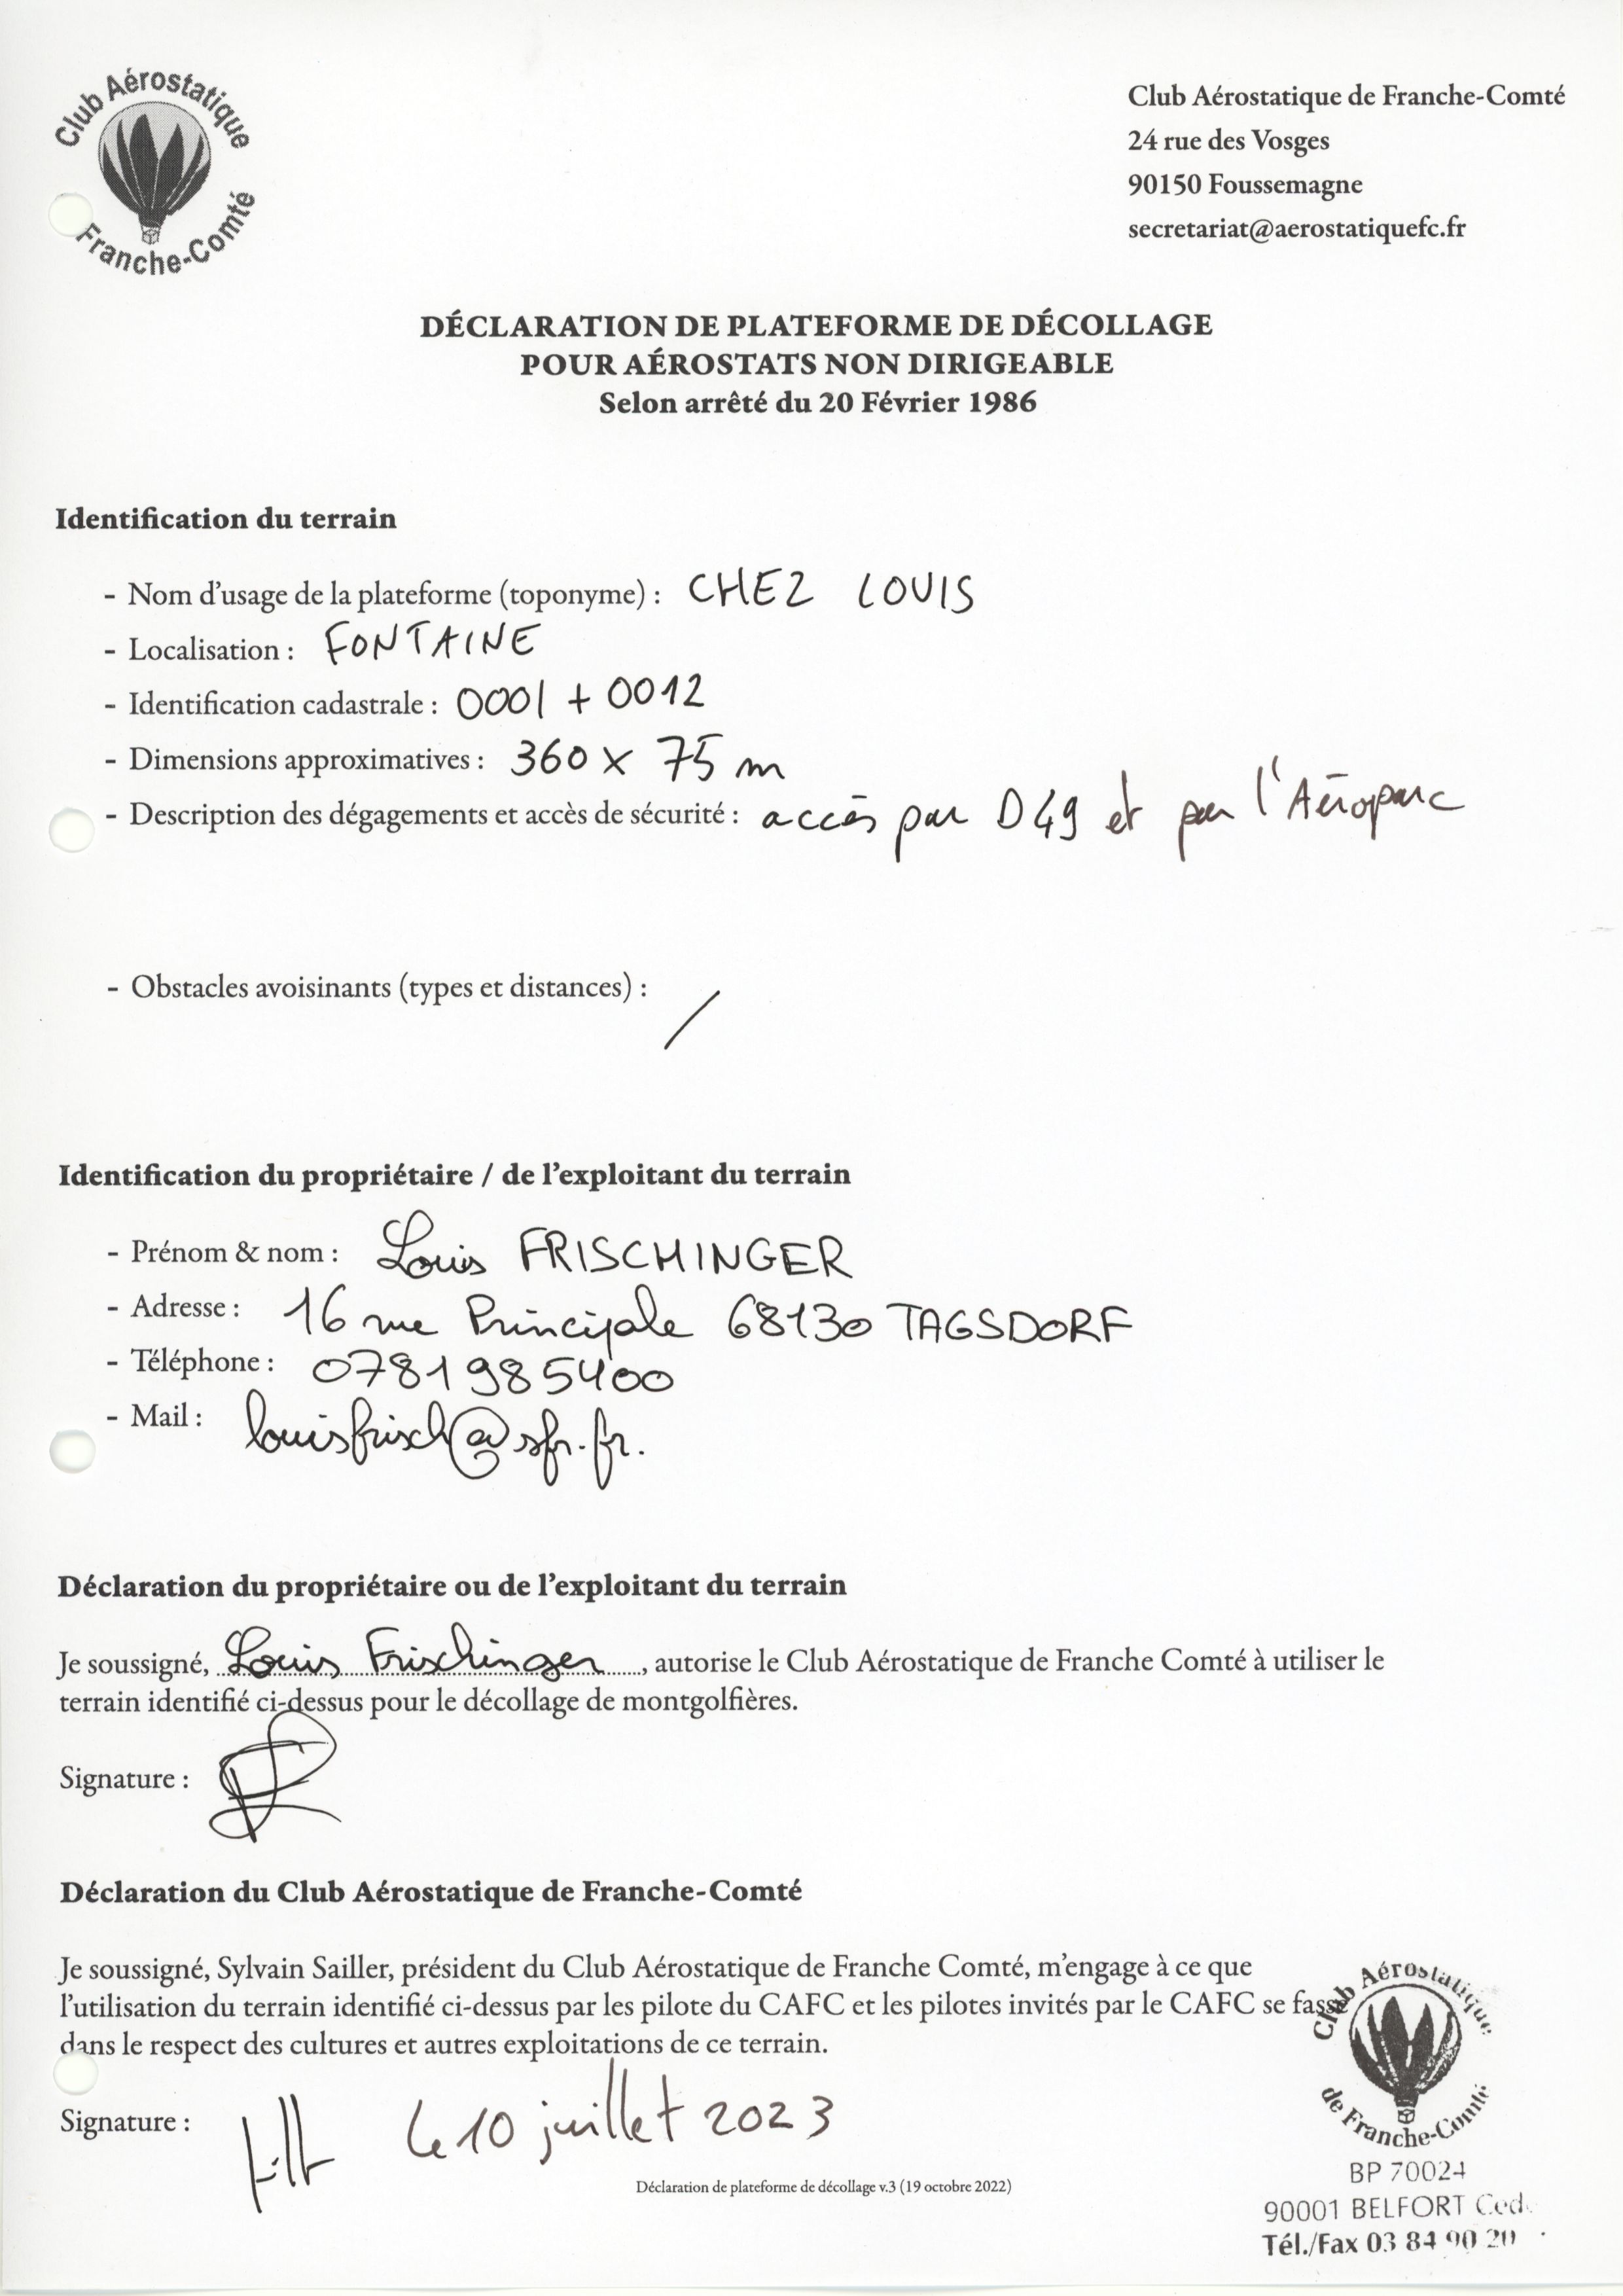 Club Aérostatique
Franche-Comté
Club Aérostatique de Franche-Comté
24 rue des Vosges
90150 Foussemagne
secretariat@aerostatiquefc.fr
DÉCLARATION DE PLATEFORME DE DÉCOLLAGE
POUR AÉROSTATS NON DIRIGEABLE
Selon arrêté du 20 Février 1986
Identification du terrain
- Nom d'usage de la plateforme (toponyme) : CHEZ LOUIS
- Localisation : FONTAINE
- Identification cadastrale : 0001 + 0012
- Dimensions approximatives : 360 x 75 m
- Description des dégagements et accès de sécurité : accès par D49 et par l'Aéroparc
- Obstacles avoisinants (types et distances) : /
Identification du propriétaire / de l'exploitant du terrain
- Prénom & nom : Louis FRISCHINGER
- Adresse : 16 rue Principale 68130 TAGSDORF
- Téléphone : 0781985400
- Mail : louisfrisch@sfr.fr.
Déclaration du propriétaire ou de l'exploitant du terrain
Je soussigné, Louis Frischinger, autorise le Club Aérostatique de Franche Comté à utiliser le
terrain identifié ci-dessus pour le décollage de montgolfières.
Signature :
Déclaration du Club Aérostatique de Franche-Comté
Je soussigné, Sylvain Sailler, président du Club Aérostatique de Franche Comté, m'engage à ce que
l'utilisation du terrain identifié ci-dessus par les pilote du CAFC et les pilotes invités par le CAFC se fasse
dans le respect des cultures et autres exploitations de ce terrain.
Signature : le 10 juillet 2023
Déclaration de plateforme de décollage v.3 (19 octobre 2022)
Club Aérostatique
de Franche-Comté
BP 70024
90001 BELFORT Ced
Tél./Fax 03 84 90 20